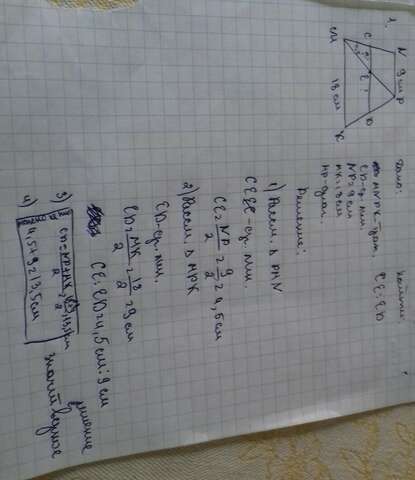 1.
C
N
9 см
P
E
D
M
18 см
K
Дано:
MNPK-трап.
CD-ср. лин.
NP=9 см
MK=18 см
MP-диаг.
Найти:
CE:ED
Решение:
1) Рассм. Δ PMN
CE-ср. лин.
CE=NP/2=9/2=4,5 см
2) Рассм. Δ MPK
ED-ср. лин.
ED=MK/2=18/2=9 см
CE:ED=4,5 см:9 см
3) CD=NP+MK/2
4) 4,5+9=13,5 см
значит верное
решение